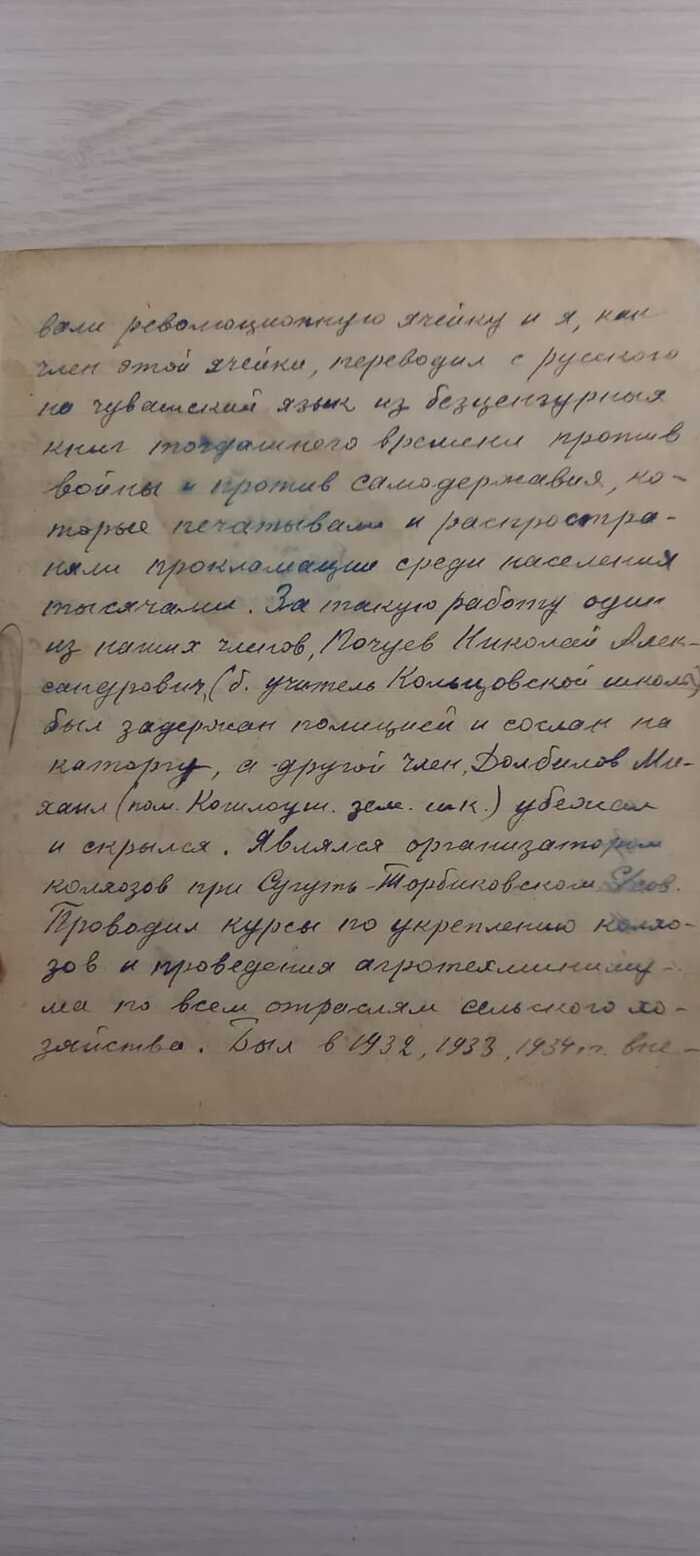 вали революционную ячейку и я, как
член этой ячейки, переводил с русского
на чувашский язык из безцензурных
книг тогдашнего времени против
войны и против самодержавия, ко-
торые печатывали и распростра-
няли прокламации среди населения
тысячами. За такую работу один
из наших членов, Почуев Николай Алек-
сандрович, (б. учитель Кольцовской школы)
был задержан полицией и сослан на
каторгу, а другой член, Долбилов Ми-
хаил (пом. Кошлоуш. зем. шк.) убежал
и скрылся. Являлся организатором
колхозов при Сугуть-Торбиковском С/сов.
Проводил курсы по укреплению колхо-
зов и проведения агротехминиму-
ма по всем отраслям сельского хо-
зяйства. Был в 1932, 1933, 1934 гг. вне-